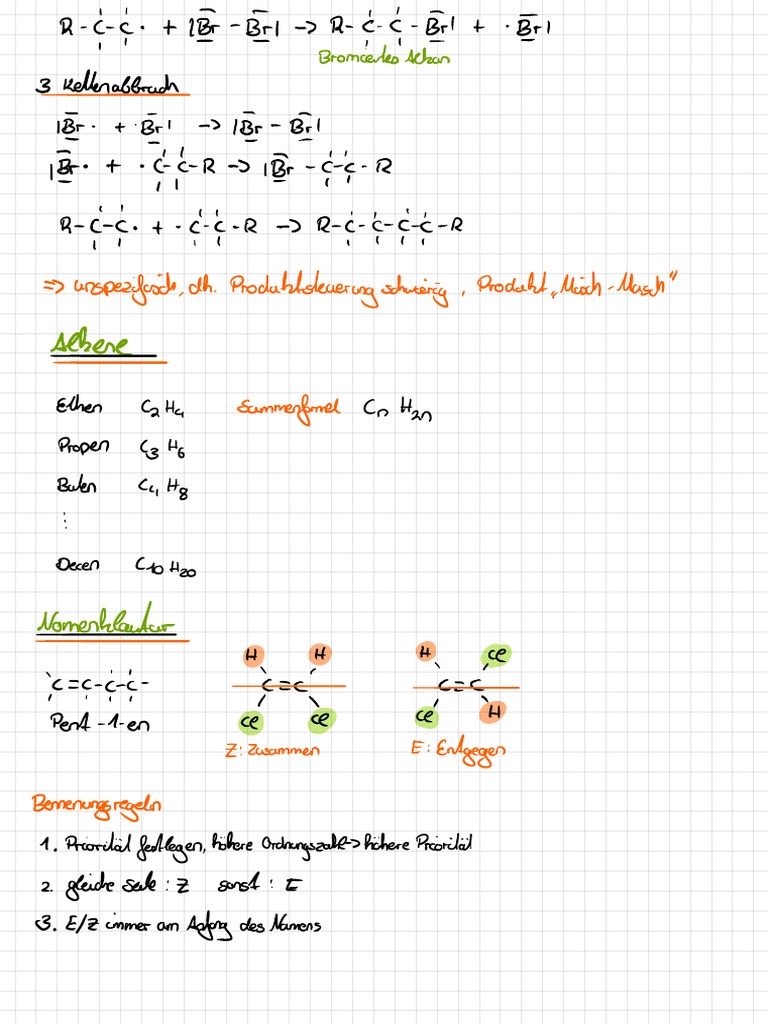 R-C-C· + |Br-Br| -> R-C-C-Br| + ·Br|
Bromiertes Alkan
3 Kettenabbruch
|Br· + ·Br| -> |Br-Br|
|Br· + ·C-C-R -> |Br-C-C-R
R-C-C· + ·C-C-R -> R-C-C-C-C-R
=> unspezifisch, dh. Produktsteuerung schwierig, Produkt „Misch-Masch"
Alkene
Ethen C2H4 Summenformel CnH2n
Propen C3H6
Buten C4H8
⋮
Decen C10H20
Nomenklatur
H H H Cl
C=C-C-C- C=C C=C
Pent-1-en Cl Cl Cl H
Z: Zusammen E: Entgegen
Bennenungsregeln
1. Priorität festlegen, höhere Ordnungszahl -> höhere Priorität
2. gleiche Seite: Z sonst: E
3. E/Z immer am Anfang des Namens